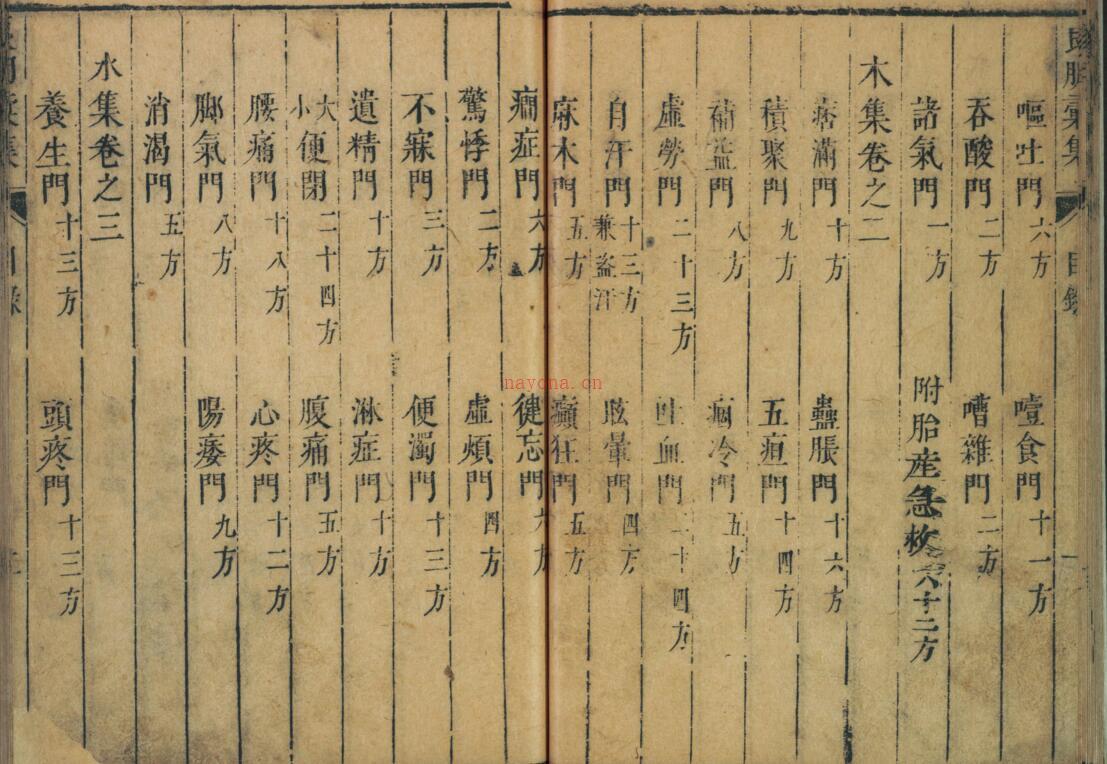 目錄
嘔吐門 六方 噎食門 十一方
吞酸門 二方 嘈雜門 二方
諸氣門 一方 附胎産急救 六十二方
木集卷之二
痞滿門 十方 蠱脹門 十六方
積聚門 九方 五疸門 十四方
補益門 八方 痼冷門 五方
虛勞門 二十三方 吐血門 二十四方
自汗門 十三方 兼盗汗 眩暈門 四方
麻木門 五方 癲狂門 五方
癇症門 六方 健忘門 六方
驚悸門 二方 虛煩門 四方
不寐門 三方 便濁門 十三方
遺精門 十方 淋症門 十方
大小便閉 二十四方 腹痛門 五方
腰痛門 十八方 心疼門 十二方
脚氣門 八方 陽痿門 九方
消渴門 五方
水集卷之三
養生門 十三方 頭疼門 十三方
nayona.cn